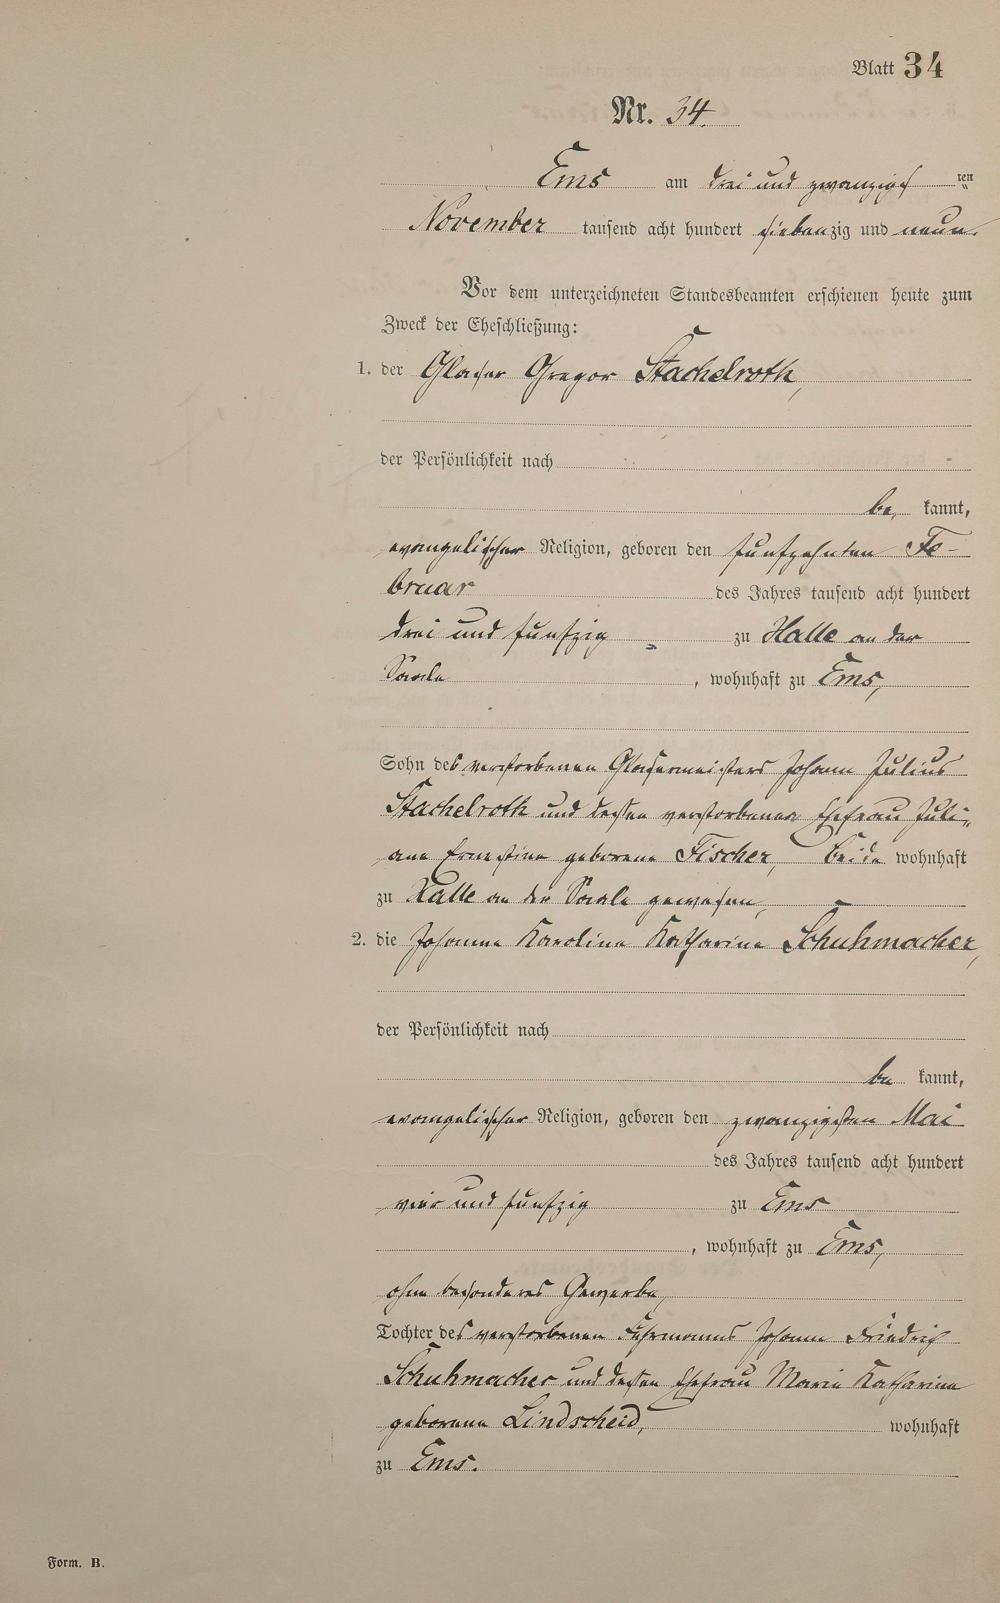 Blatt 34
Nr. 34.
Ems am drei und zwanzigsten
November tausend acht hundert siebenzig und neun.
Vor dem unterzeichneten Standesbeamten erschienen heute zum
Zweck der Eheschließung:
1. der Glaser Gregor Stachelroth,
der Persönlichkeit nach
be kannt,
evangelischer Religion, geboren den funfzehnten Fe-
bruar des Jahres tausend acht hundert
drei und funfzig zu Halle an der
Saale, wohnhaft zu Ems,
Sohn des verstorbenen Glasermeisters Johann Julius
Stachelroth und dessen verstorbener Ehefrau Juli-
ane Ernestine geborene Fischer, beide wohnhaft
zu Halle an der Saale gewesen,
2. die Johanna Karolina Katharina Schuhmacher,
der Persönlichkeit nach
be kannt,
evangelischer Religion, geboren den zwanzigsten Mai
des Jahres tausend acht hundert
vier und funfzig zu Ems
, wohnhaft zu Ems,
ohne besonderes Gewerbe,
Tochter des verstorbenen Fuhrmanns Johann Friedrich
Schuhmacher und dessen Ehefrau Maria Katharina
geborene Lindscheid, wohnhaft
zu Ems.
Form. B.